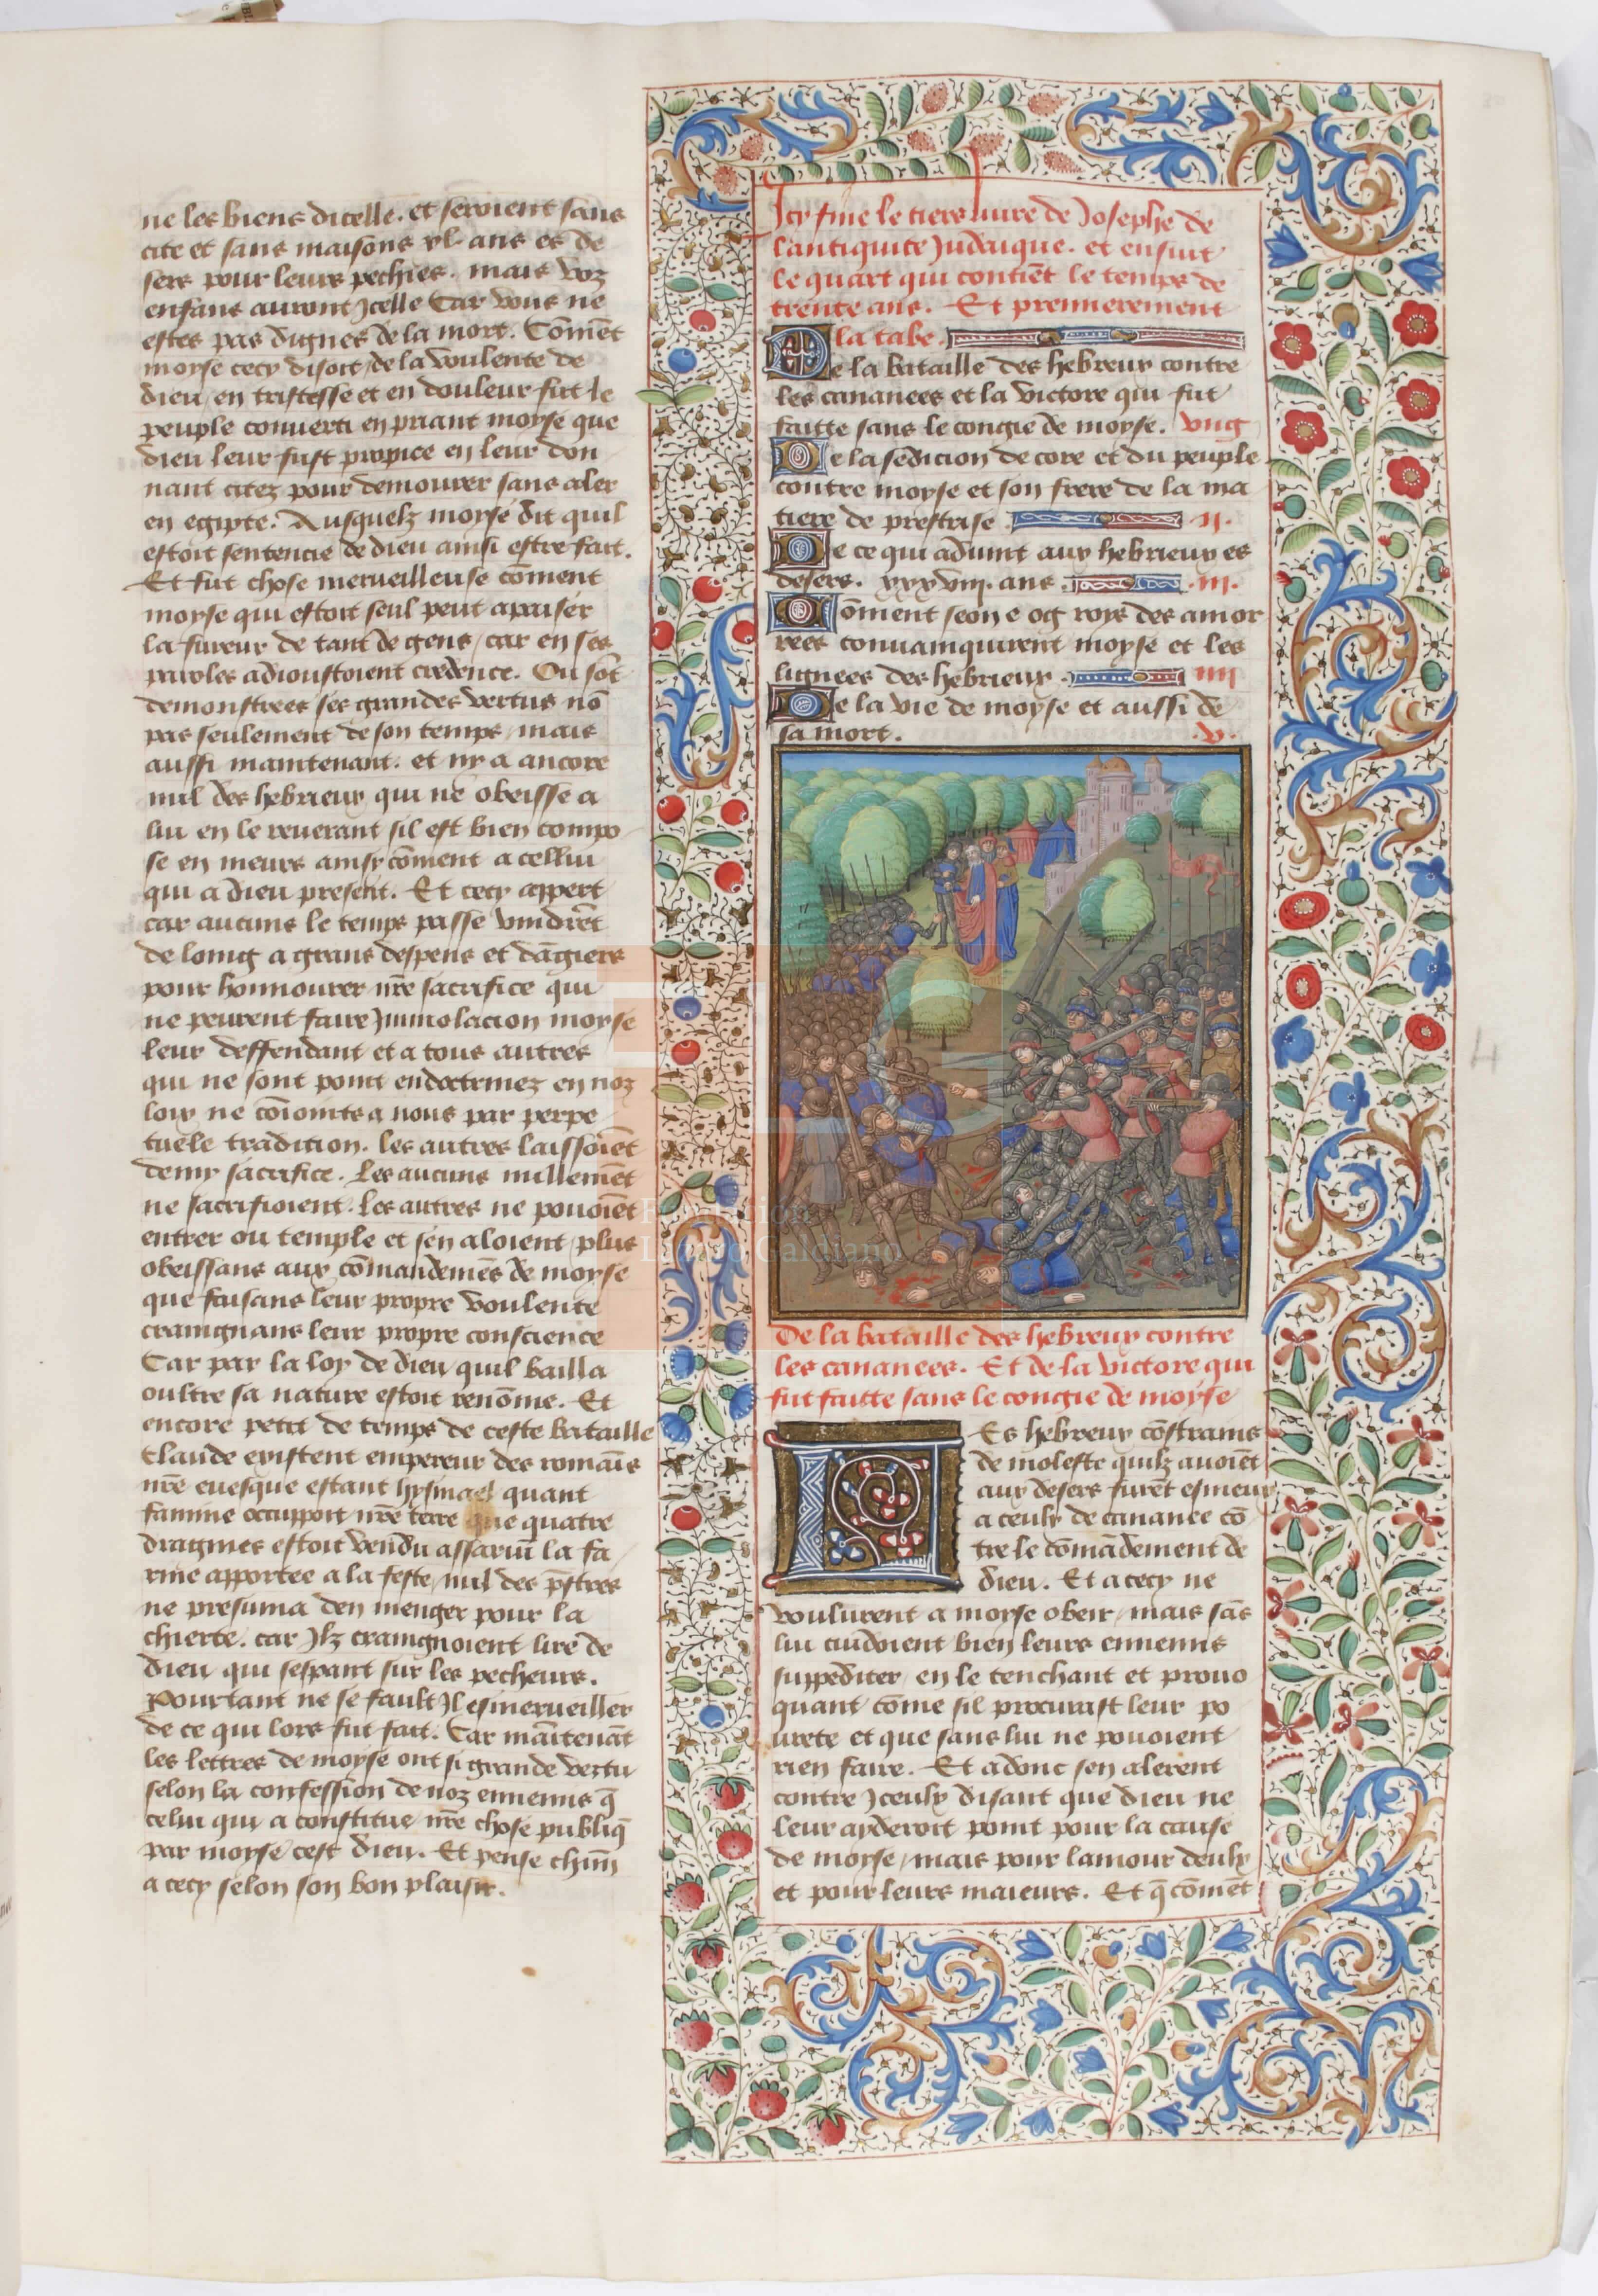 ne les biens dicelle. et seroient sans
cite et sans maisons xl. ans es de
sers pour leurs pechies. mais voz
enfans auront Jcelle Car vous ne
estes pas dignes de la mort. Cōmēt
moyse cecy disoit de la voulente de
dieu en tristesse et en douleur fut le
peuple conuerti en priant moyse que
dieu leur fust propice en leur don
nant citez pour demourer sans aler
en egipte. Ausquelz moyse dit quil
estoit sentencie de dieu ainsi estre fait.
Et fut chose merueilleuse cōment
moyse qui estoit seul peut apaiser
la fureur de tant de gens / car en ses
paroles adioustoient credence. Ou sōt
demonstrees ses grandes vertus nō
pas seulement de son temps / mais
aussi maintenant. et ny a ancore
nul des hebrieux qui ne obeisse a
lui en le reuerant sil est bien compo
se en meurs ainsy cōment a cellui
qui a dieu present. Et cecy appert
car aucuns le temps passe vindrēt
de loing a grans despens et dāgiers
pour honnourer nr̄e sacrifice qui
ne peurent faire Jmmolacion moyse
leur deffendant et a tous autres
qui ne sont point endoctrinez en noz
loix ne cōiointz a nous par perpe
tuele tradition. les autres laissoiēt
demy sacrifice. Les aucuns nullemēt
ne sacrifioient. les autres ne pouoiēt
entrer ou temple et sen aloient plus
obeissans aux cōmandemēs de moyse
que faisans leur propre voulente
craingnans leur propre conscience
Car par la loy de dieu quil bailla
oultre sa nature estoit renōme. Et
encore petit de temps de ceste bataille
Claude existent empereur des romaīs
nr̄e euesque estant hysmael quant
famine occuppoit nr̄e terre que quatre
dragmes estoit vendu assariū la fa
rine apportee a la feste / nul des pr̄stres
ne presuma den menger pour la
chierte. car Jlz craingnoient lire de
dieu qui sespant sur les pecheurs.
Pourtant ne se fault Jl esmerueiller
de ce qui lors fut fait. Car maītenāt
les lettres de moyse ont si grande vertu
selon la confession de noz ennemis q̄
celui qui a constitue nr̄e chose publiq̄
par moyse cest dieu. Et pense chūn
a cecy selon son bon plaisir.
Jcy fine le tiers liure de Josephe de
lantiquite Judaique. et ensuit
le quart qui contiēt le temps de
trente ans. Et premierement
la tabe.
De la bataille des hebreux contre
les cananees et la victore qui fut
faitte sans le congie de moyse. vng
De la sedicion de core et du peuple
contre moyse et son frere de la ma
tiere de prestrise .ii.
De ce qui aduint aux hebrieux es
desers. xxxviii. ans .iii.
Cōment seon e og roys des amor
rees conuainquirent moyse et les
lignees des hebrieux. iiii
De la vie de moyse et aussi de
sa mort. .v.
De la bataille des hebreux contre
les cananees. Et de la victore qui
fut faitte sans le congie de moyse
LEs hebreux cōstrains
de moleste quilz auoiēt
aux desers furēt esmeux
a ceulx de cananee cō
tre le cōmādement de
dieu. Et a cecy ne
voulurent a moyse obeir / mais sās
lui cuidoient bien leurs ennemis
suppediter en le tenchant et prouo
quant cōme sil procurast leur po
urete et que sans lui ne pouoient
rien faire. Et adonc sen alerent
contre Jceulx disant que dieu ne
leur ayderoit point pour la cause
de moyse / mais pour lamour deulx
et pour leurs maieurs. Et q̄ cōmēt
Fundación
Lázaro Galdiano